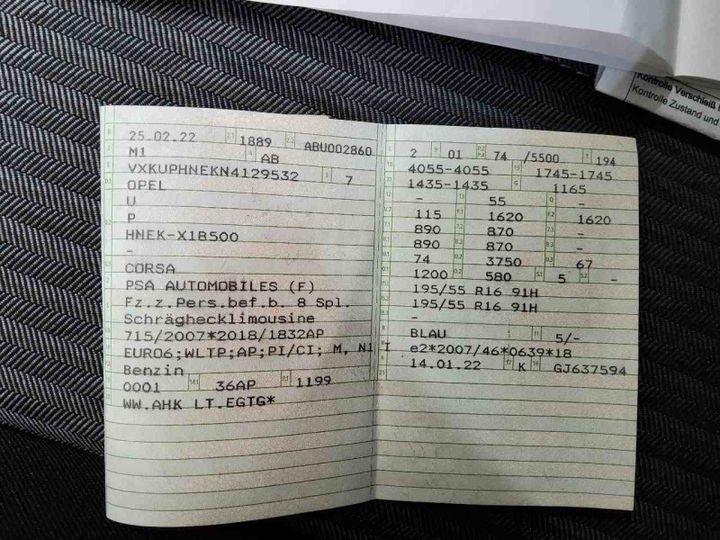 Kontrolle Verschleiß
Kontrolle Zustand und
25.02.22 1889 ABU002860
M1 AB
VXKUPHNEKN4129532 7
OPEL
U
P
HNEK-X1B500
-
CORSA
PSA AUTOMOBILES (F)
Fz.z.Pers.bef.b. 8 Spl.
Schräghecklimousine
715/2007*2018/1832AP
EURO6;WLTP;AP;PI/CI; M, N1 I
Benzin
0001 36AP 1199
WW.AHK LT.EGTG*
2 01 74 /5500 194
4055-4055 1745-1745
1435-1435 1165
- 55 -
115 1620 1620
890 870 -
890 870 -
74 3750 67
1200 580 5 -
195/55 R16 91H
195/55 R16 91H
-
BLAU 5/-
e2*2007/46*0639*18
14.01.22 K GJ637594